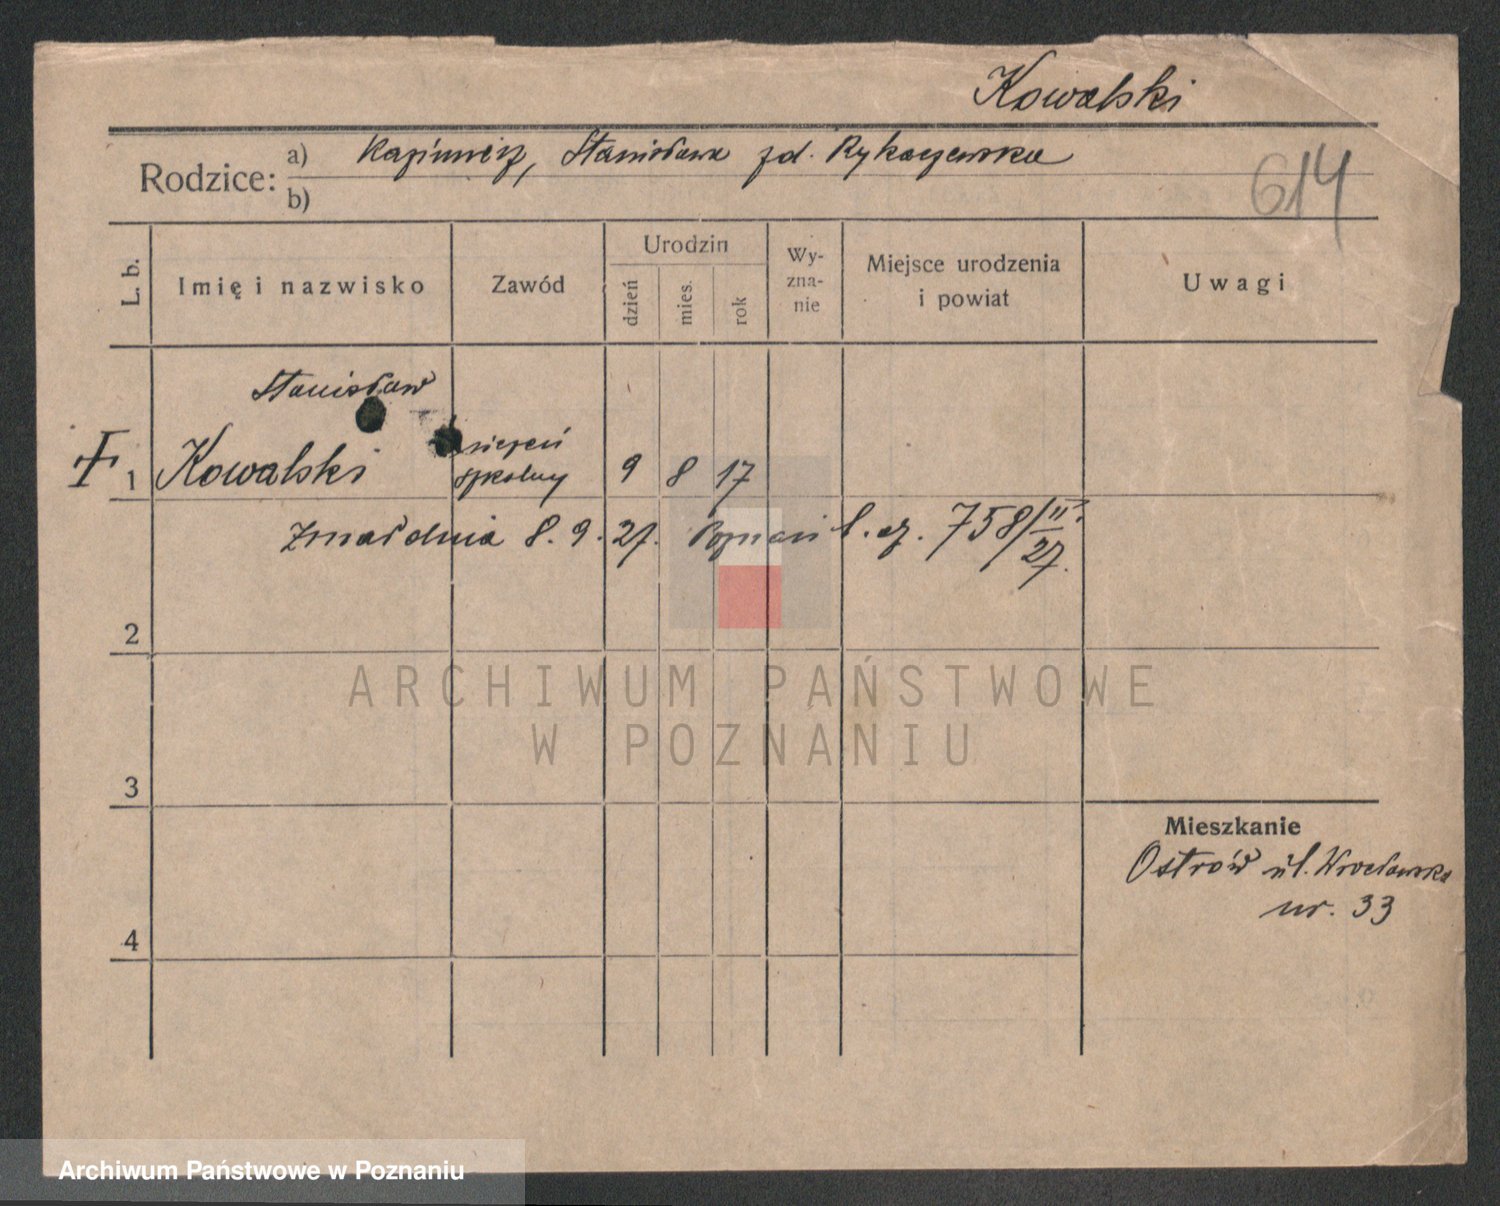 Kowalski
Rodzice: a) Kazimierz, Stanisława zd. Rykaczewska
b)
614
L. b. Imię i nazwisko Zawód Urodzin dzień mies. rok Wy-zna-nie Miejsce urodzenia i powiat Uwagi
Stanisław
1 Kowalski szkolny 9 8 17
8. 9. 27. Poznań l. dz. 758/II 27.
2
ARCHIWUM PAŃSTWOWE
W POZNANIU
3
Mieszkanie
Ostrów ul. Wrocławska
nr. 33
4
Archiwum Państwowe w Poznaniu